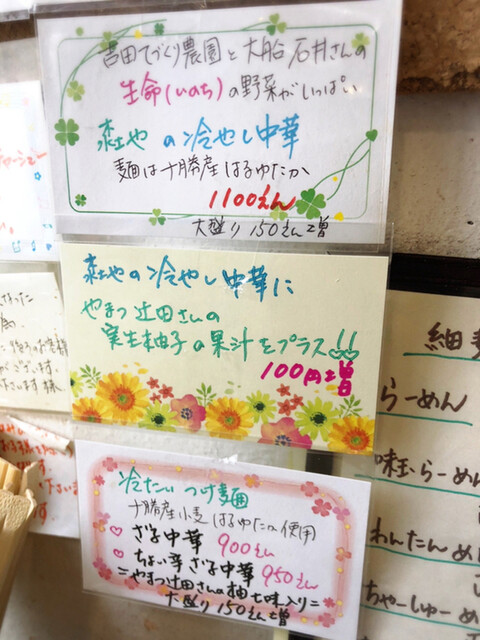 吉田てづくり農園と大船石井さんの
生命(いのち)の野菜がいっぱい
の冷やし中華
麺は十勝産はるゆたか
1100えん
大盛り150えん増
の冷やし中華に
やまつ辻田さんの
実生柚子の果汁をプラス!!
100円増
冷たいつけ麺
十勝産小麦はるゆたか使用
♡ざる中華 900えん
♡ちょい辛ざる中華 950えん
=やまつ辻田さんの柚七味入り=
大盛り150えん増
細
らーめん
味玉らーめん
わんたんめ
ちゃーしゅーめ